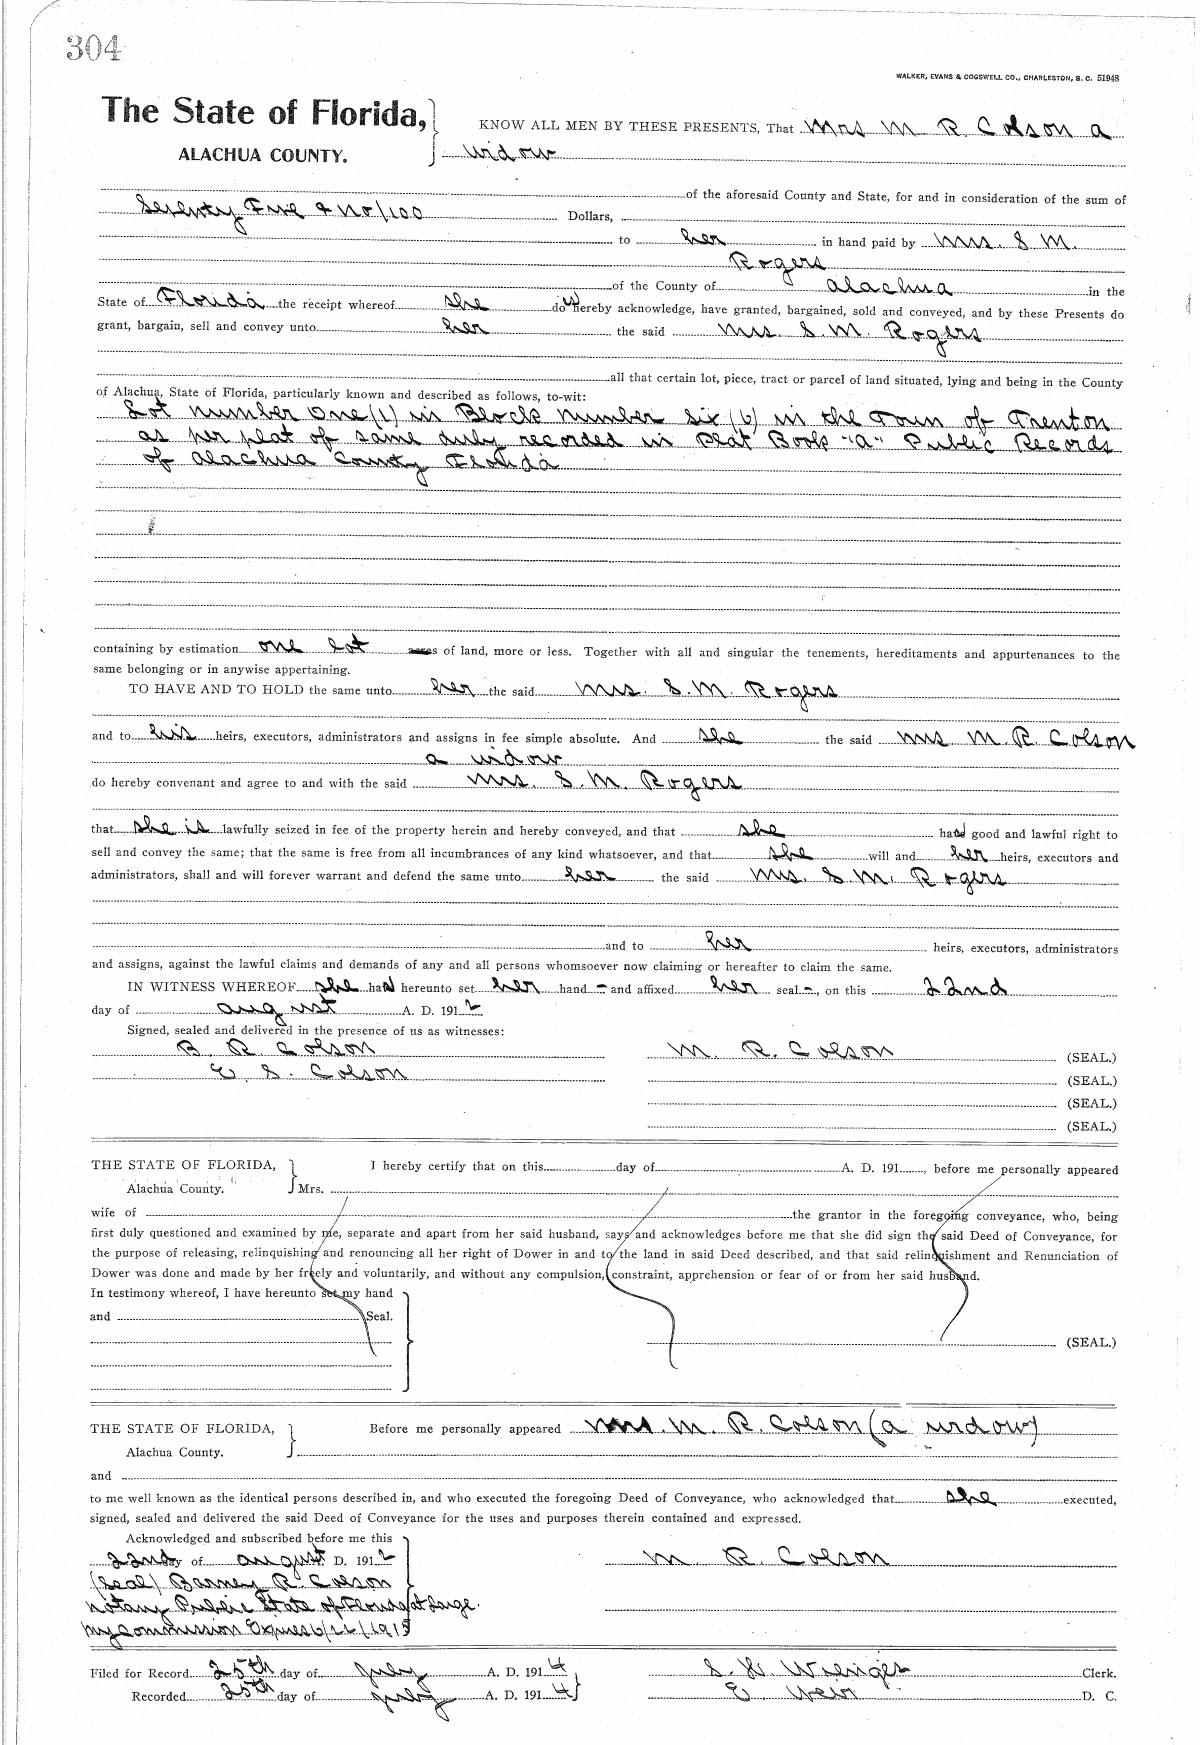 304
WALKER, EVANS & COGSWELL CO., CHARLESTON, S. C. 51948
The State of Florida,
KNOW ALL MEN BY THESE PRESENTS, That Mrs M R Colson a
ALACHUA COUNTY.
widow
of the aforesaid County and State, for and in consideration of the sum of
Seventy Five & no/100 Dollars,
to her in hand paid by Mrs. S M.
Rogers
of the County of Alachua in the
State of Florida the receipt whereof she do hereby acknowledge, have granted, bargained, sold and conveyed, and by these Presents do
grant, bargain, sell and convey unto her the said Mrs. S. M. Rogers
all that certain lot, piece, tract or parcel of land situated, lying and being in the County
of Alachua, State of Florida, particularly known and described as follows, to-wit:
Lot number One (1) in Block number six (6) in the Town of Trenton
as per plat of same duly recorded in Plat Book "a" Public Records
of Alachua County Florida
containing by estimation one lot acres of land, more or less. Together with all and singular the tenements, hereditaments and appurtenances to the
same belonging or in anywise appertaining.
TO HAVE AND TO HOLD the same unto her the said Mrs. S. M. Rogers
and to his heirs, executors, administrators and assigns in fee simple absolute. And she the said Mrs M. R. Colson
a widow
do hereby convenant and agree to and with the said Mrs. S. M. Rogers
that she is lawfully seized in fee of the property herein and hereby conveyed, and that she has good and lawful right to
sell and convey the same; that the same is free from all incumbrances of any kind whatsoever, and that she will and her heirs, executors and
administrators, shall and will forever warrant and defend the same unto her the said Mrs. S M. Rogers
and to her heirs, executors, administrators
and assigns, against the lawful claims and demands of any and all persons whomsoever now claiming or hereafter to claim the same.
IN WITNESS WHEREOF she has hereunto set her hand - and affixed her seal -, on this 22nd
day of August A. D. 1912
Signed, sealed and delivered in the presence of us as witnesses:
B R Colson M. R. Colson (SEAL.)
E. S. Colson (SEAL.)
(SEAL.)
(SEAL.)
THE STATE OF FLORIDA, I hereby certify that on this day of A. D. 191 , before me personally appeared
Alachua County. Mrs.
wife of the grantor in the foregoing conveyance, who, being
first duly questioned and examined by me, separate and apart from her said husband, says and acknowledges before me that she did sign the said Deed of Conveyance, for
the purpose of releasing, relinquishing and renouncing all her right of Dower in and to the land in said Deed described, and that said relinquishment and Renunciation of
Dower was done and made by her freely and voluntarily, and without any compulsion, constraint, apprehension or fear of or from her said husband.
In testimony whereof, I have hereunto set my hand
and Seal.
(SEAL.)
THE STATE OF FLORIDA, Before me personally appeared Mrs. M. R. Colson (a widow)
Alachua County.
and
to me well known as the identical persons described in, and who executed the foregoing Deed of Conveyance, who acknowledged that she executed,
signed, sealed and delivered the said Deed of Conveyance for the uses and purposes therein contained and expressed.
Acknowledged and subscribed before me this
22nd day of August D. 1912 M R. Colson
(Seal) Barney R. Colson
Notary Public State of Florida at Large.
My Commission Expires
Filed for Record 25th day of July A. D. 1914 Clerk.
Recorded 25th day of July A. D. 1914 E. Weir D. C.